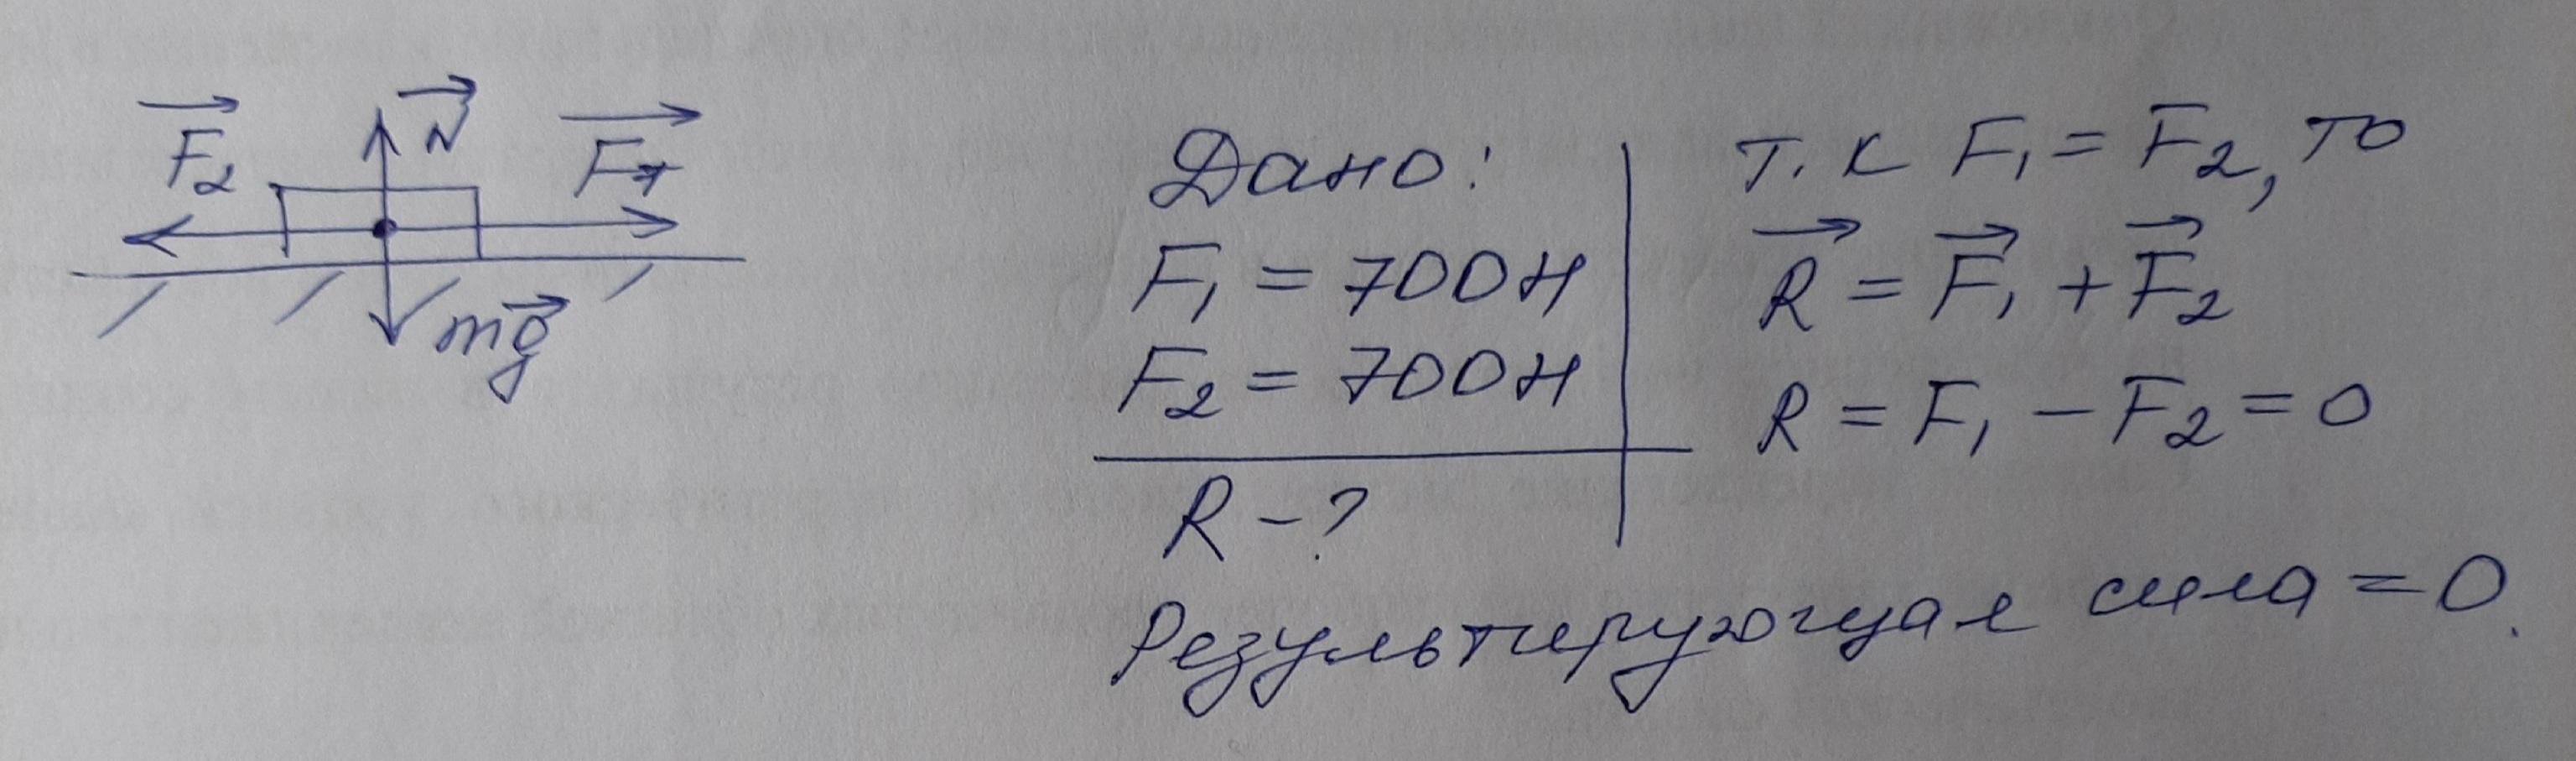 F₂ N F₁
mg
Дано:
F₁ = 700Н
F₂ = 700Н
R - ?
т. к F₁ = F₂, то
R = F₁ + F₂
R = F₁ - F₂ = 0
Результирующая сила = 0.